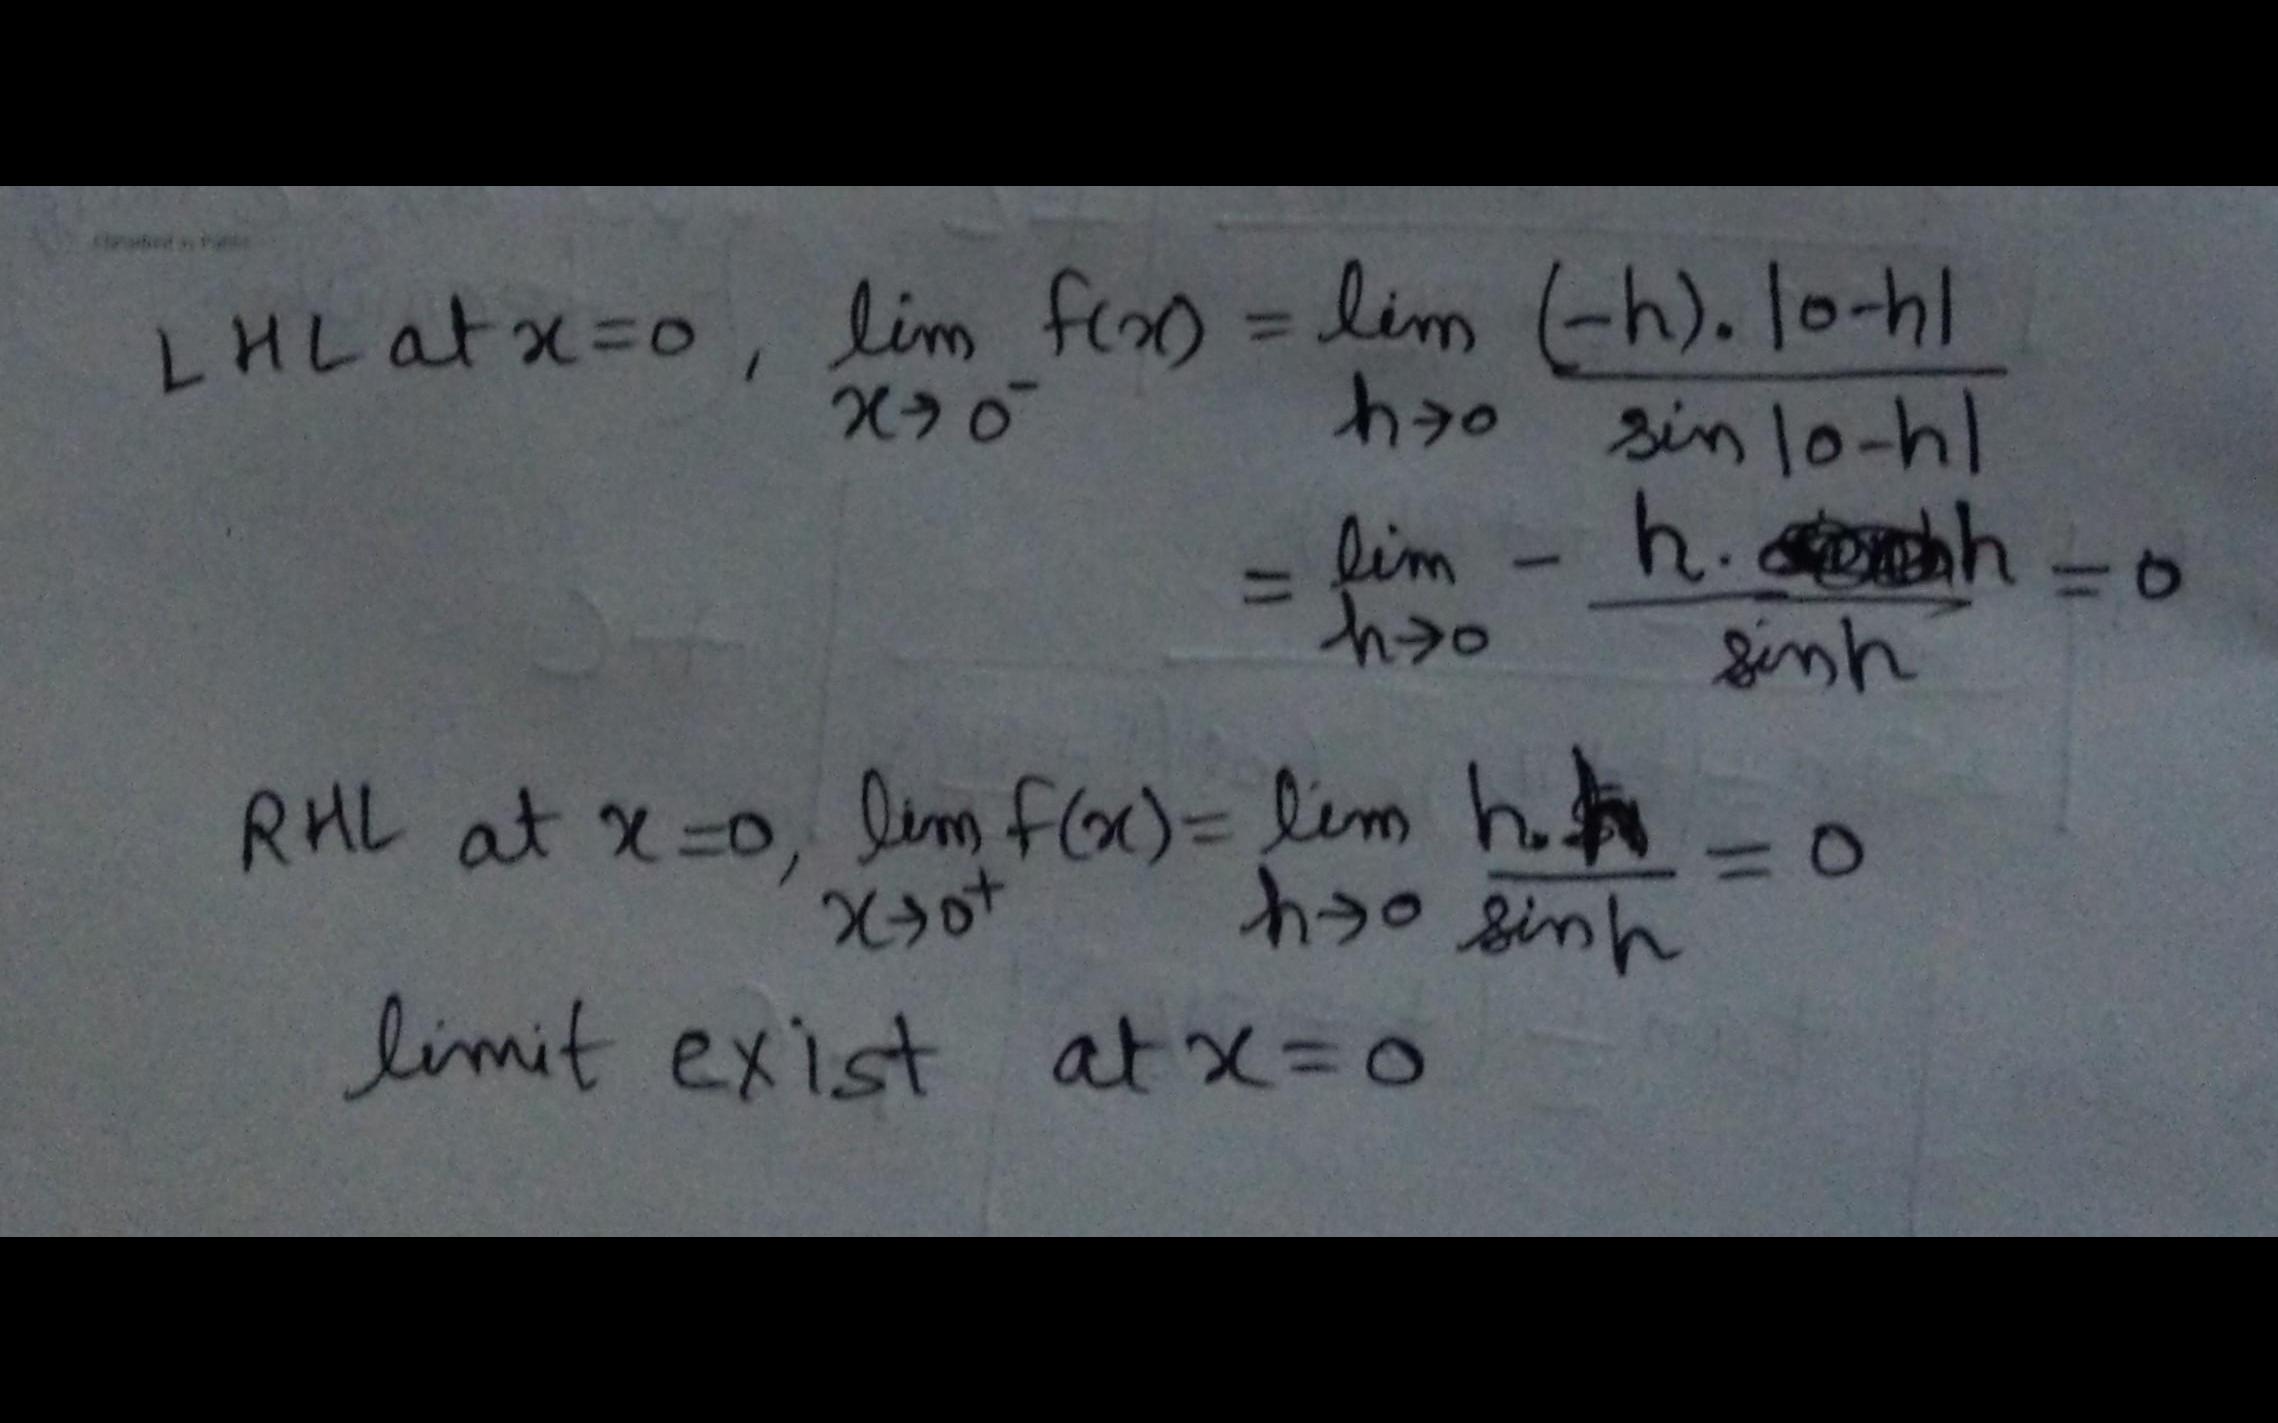 Classified as Public
LHL at x=0, lim x→0⁻ f(x) = lim h→0 (-h).|0-h| / sin|0-h|
= lim h→0 - h.h / sinh = 0
RHL at x=0, lim x→0⁺ f(x) = lim h→0 h.h / sinh = 0
limit exist at x=0